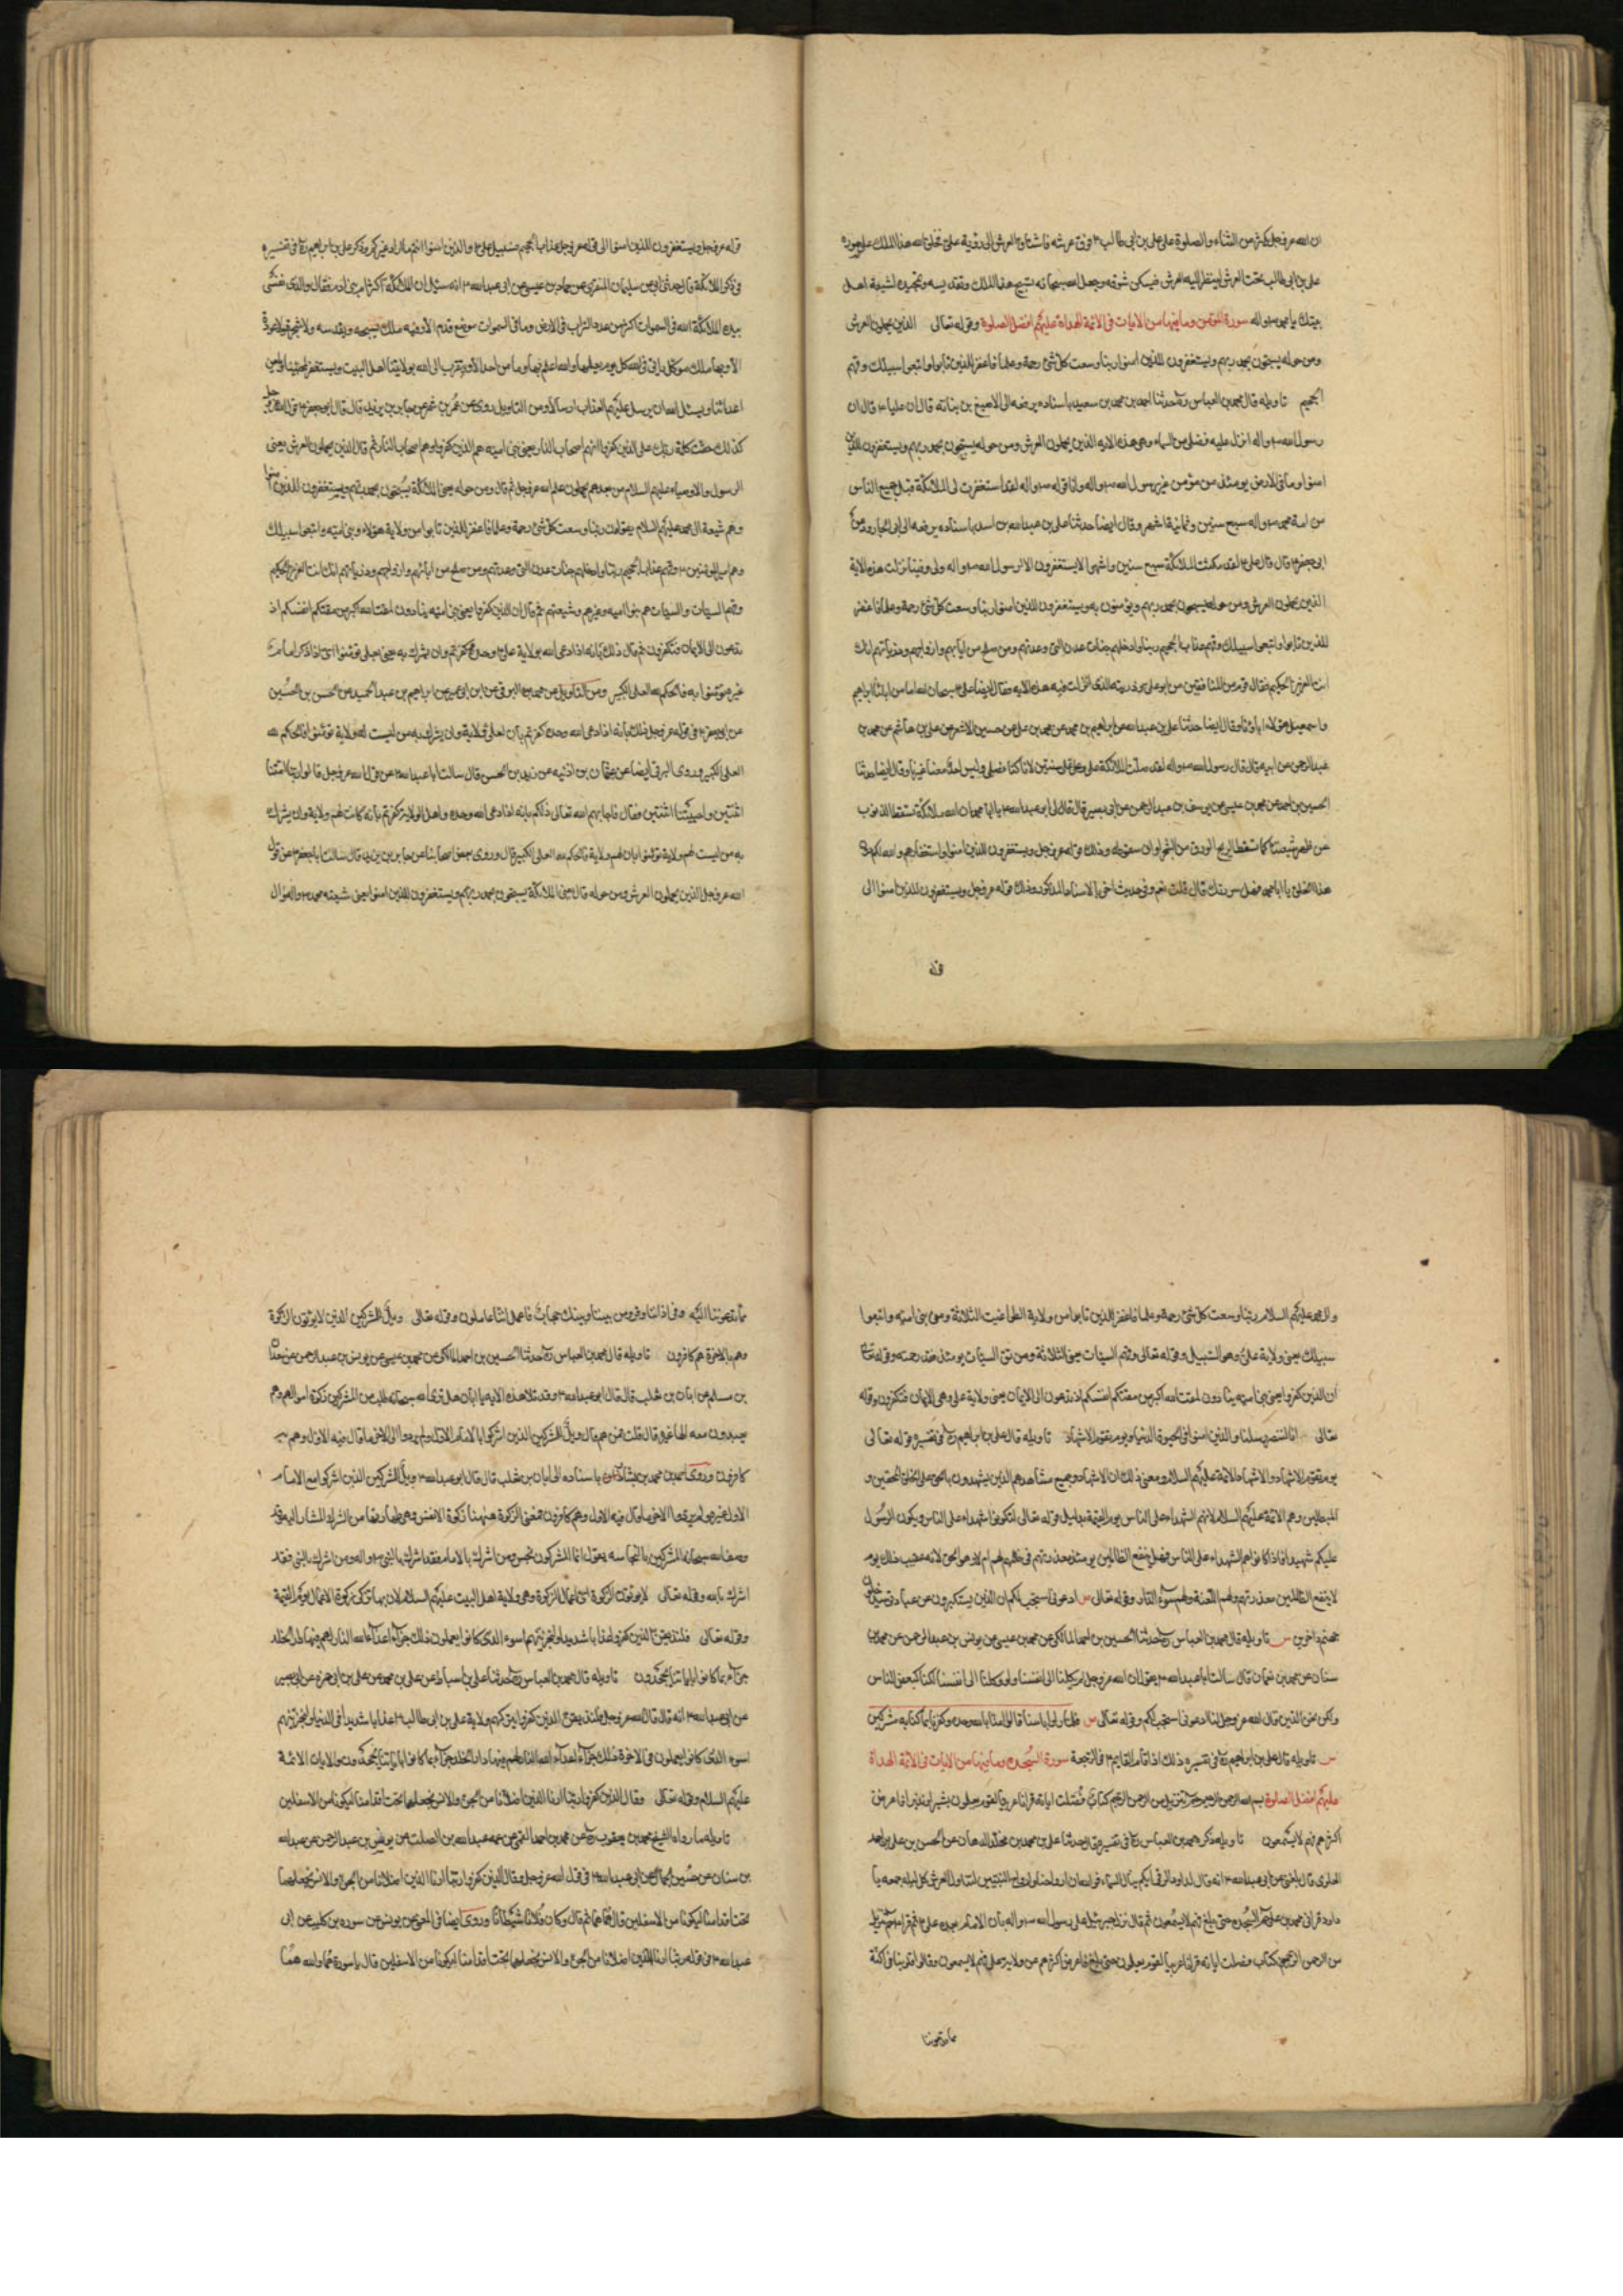 ان الله عز وجل يكثر من الثناء والصلوة على علي بن ابي طالب ع فوق عرشه فاشتاق العرش الى رؤية علي ع فخلق الله هذا الملك على صورة
علي بن ابي طالب تحت العرش لينظر اليه العرش فيسكن شوقه وجعل الله سبحانه تسبيح هذا الملك وتقديسه وتمجيده لشيعة اهل
بيتك يا محمد ص واله سورة المؤمن وما فيها من الايات في الائمة الهداة عليهم افضل الصلوة وقوله تعالى الذين يحملون العرش
ومن حوله يسبحون بحمد ربهم ويستغفرون للذين امنوا ربنا وسعت كل شئ رحمة وعلما فاغفر للذين تابوا واتبعوا سبيلك وقهم
الجحيم تاويله قال محمد بن العباس ره حدثنا احمد بن محمد بن سعيد باسناده يرفعه الى الاصبغ بن نباتة قال ان عليا ع قال ان
رسول الله ص واله انزل عليه فضلي من السماء وهي هذه الاية الذين يحملون العرش ومن حوله يسبحون بحمد ربهم ويستغفرون للذين
امنوا وما في الارض يومئذ من مؤمن غير رسول الله ص واله وانا قوله ص واله لقد استغفرت لي الملائكة قبل جميع الناس
من امة محمد ص واله سبع سنين وثمانية اشهر وقال ايضا حدثنا علي بن عبد الله بن اسد باسناده يرفعه الى ابي الجارود عن
ابي جعفر ع قال قال علي ع لقد مكثت الملائكة سبع سنين واشهرا لا يستغفرون الا لرسول الله ص واله ولي وفينا نزلت هذه الاية
الذين يحملون العرش ومن حوله يسبحون بحمد ربهم ويؤمنون به ويستغفرون للذين امنوا ربنا وسعت كل شئ رحمة وعلما فاغفر
للذين تابوا واتبعوا سبيلك وقهم عذاب الجحيم ربنا وادخلهم جنات عدن التي وعدتهم ومن صلح من ابائهم وازواجهم وذرياتهم انك
انت العزيز الحكيم فقال قوم من المنافقين من ابو علي وذريته الذي انزلت فيه هذه الاية فقال علي ع سبحان الله اما من ابائنا ابراهيم
واسمعيل هؤلاء اباؤنا وقال ايضا حدثنا علي بن عبد الله عن ابراهيم بن محمد عن محمد بن علي عن حسين الاشقر عن علي بن هاشم عن محمد بن
عبد الرحمن عن ابيه قال قال رسول الله ص واله لقد صلت الملائكة علي وعلى علي سنتين لانا كنا نصلي وليس احد معنا غيرنا وقال ايضا حدثنا
الحسين بن احمد عن محمد بن عيسى عن يونس بن عبد الرحمن عن ابي بصير قال قال لي ابو عبد الله ع يا ابا محمد ان لله ملائكة تسقط الذنوب
عن ظهر شيعتنا كما تسقط الريح الورق من الشجر اوان سقوطه وذلك قوله عز وجل ويستغفرون للذين امنوا واستغفارهم والله لكم دون
هذا الخلق يا ابا محمد فهل سررتك قال قلت نعم وفي حديث اخر بالاسناد المذكور وذلك قوله عز وجل ويستغفرون للذين امنوا الى
قوله
قوله عز وجل ويستغفرون للذين امنوا الى قوله عز وجل عذاب الجحيم فسبيل علي ع والذين امنوا انتم ما اراد غيركم وذكر علي بن ابراهيم ره في تفسيره
في ذكر الملائكة قال حدثني ابي عن سليمان المنقري عن حماد بن عيسى عن ابي عبد الله ع انه سئل ان الملائكة اكثر ام بنو ادم فقال والذي نفسي
بيده لملائكة الله في السموات اكثر من عدد التراب في الارض وما في السموات موضع قدم الا وفيه ملك يسبحه ويقدسه ولا شجرة ولا عودة
الا وبها ملك موكل ياتي الله كل يوم بعملها والله اعلم بها وما من احد الا ويتقرب الى الله بولايتنا اهل البيت ويستغفر لمحبينا ويلعن
اعدائنا ويسئل الله ان يرسل عليهم العذاب ارسالا ومن التاويل روى عن عمرو بن شمر عن جابر بن يزيد قال قال ابو جعفر ع قول الله عز وجل
كذلك حقت كلمة ربك على الذين كفروا انهم اصحاب النار يعني بني امية هم الذين كفروا وهم اصحاب النار ثم قال الذين يحملون العرش يعني
الرسول والاوصياء عليهم السلام من بعدهم يحملون علم الله عز وجل ثم قال ومن حوله يعني الملائكة يسبحون بحمد ربهم ويستغفرون للذين امنوا
وهم شيعة ال محمد عليهم السلام يقولون ربنا وسعت كل شئ رحمة وعلما فاغفر للذين تابوا من ولاية هؤلاء وبني امية واتبعوا سبيلك
وهو امير المؤمنين ع وقهم عذاب الجحيم ربنا وادخلهم جنات عدن التي وعدتهم ومن صلح من ابائهم وازواجهم وذرياتهم انك انت العزيز الحكيم
وقهم السيئات والسيئات هم بنو امية وغيرهم وشيعتهم ثم قال ان الذين كفروا يعني بني امية ينادون لمقت الله اكبر من مقتكم انفسكم اذ
تدعون الى الايمان فتكفرون ثم قال ذلك بانه اذا دعي الله بولاية علي ع وحده كفرتم وان يشرك به يعني بعلي تؤمنوا اي اذا ذكر امام
غيره تؤمنوا به فالحكم لله العلي الكبير ومن التاويل عن محمد البرقي عن ابن ابي عمير عن ابراهيم بن عبد الحميد عن الحسن بن الحسين
عن ابي جعفر ع في قوله عز وجل ذلك بانه اذا دعي الله وحده كفرتم بان لعلي ولاية وان يشرك به من ليست له ولاية تؤمنوا فالحكم لله
العلي الكبير وروى البرقي ايضا عن عثمان بن اذنيه عن زيد بن الحسن قال سالت ابا عبد الله ع عن قول الله عز وجل قالوا ربنا امتنا
اثنتين واحييتنا اثنتين فقال فاجابهم الله تعالى ذلكم بانه اذا دعي الله وحده واهل الولاية كفرتم بانه كانت لهم ولاية وان يشرك
به من ليست لهم ولاية تؤمنوا بان لهم ولاية فالحكم لله العلي الكبير قال وروى بعض اصحابنا عن جابر بن يزيد قال سالت ابا جعفر ع عن قول
الله عز وجل الذين يحملون العرش ومن حوله قال يعني الملائكة يسبحون بحمد ربهم ويستغفرون للذين امنوا يعني شيعة محمد ص واله وال
وال محمد عليهم السلام ربنا وسعت كل شئ رحمة وعلما فاغفر للذين تابوا من ولاية الطواغيت الثلاثة ومن بني امية واتبعوا
سبيلك يعني ولاية علي وهو السبيل وقوله تعالى وقهم السيئات يعني الثلاثة ومن تق السيئات يومئذ فقد رحمته وقوله تعالى
ان الذين كفروا يعني بني امية ينادون لمقت الله اكبر من مقتكم انفسكم اذ تدعون الى الايمان يعني ولاية علي وهي الايمان فتكفرون وقوله
تعالى انا لننصر رسلنا والذين امنوا في الحيوة الدنيا ويوم يقوم الاشهاد تاويله قال علي بن ابراهيم ره في تفسيره قوله تعالى
يوم يقوم الاشهاد والاشهاد الائمة عليهم السلام ومعنى ذلك ان الاشهاد جميع مشاهدهم الذين يشهدون بالحق على الخلق المحقين و
المبطلين وهم الائمة عليهم السلام لانهم الشهداء على الناس يوم القيمة بدليل قوله تعالى لتكونوا شهداء على الناس ويكون الرسول
عليكم شهيدا فاذا كانوا هم الشهداء على الناس فهل ينفع الظالمين يومئذ معذرتهم في ظلمهم لهم ام لا وهو الحق لانه عقيب ذلك يوم
لا ينفع الظالمين معذرتهم ولهم اللعنة ولهم سوء الدار وقوله تعالى ادعوني استجب لكم ان الذين يستكبرون عن عبادتي سيدخلون
جهنم داخرين تاويله قال محمد بن العباس ره حدثنا الحسين بن احمد المالكي عن محمد بن عيسى عن يونس بن عبد الرحمن عن محمد بن
سنان عن محمد بن نعمان قال سالت ابا عبد الله ع يقول ان الله عز وجل لم يكلنا الى انفسنا ولو وكلنا الى انفسنا لكنا كبعض الناس
ولكن نحن الذين قال الله عز وجل لنا ادعوني استجب لكم وقوله تعالى فلما راوا باسنا قالوا امنا بالله وحده وكفرنا بما كنا به مشركين
تاويله قال علي بن ابراهيم ره في تفسيره ذلك اذا قام القائم ع في الرجعة سورة السجدة وما فيها من الايات في الائمة الهداة
عليهم افضل الصلوة بسم الله الرحمن الرحيم حم تنزيل من الرحمن الرحيم كتاب فصلت اياته قرانا عربيا لقوم يعلمون بشيرا ونذيرا فاعرض
اكثرهم فهم لا يسمعون تاويله ذكره محمد بن العباس ره في تفسيره قال حدثنا علي بن محمد بن مخلد الدهان عن الحسن بن علي بن احمد
العلوي قال بلغني عن ابي عبد الله ع انه قال لداود الرقي ايكم ينال السماء فوالله ان ارواحنا وارواح النبيين لتناول العرش كل ليلة جمعة يا
داود قرا ابي محمد بن علي حم السجدة حتى بلغ فهم لا يسمعون ثم قال نزل جبرئيل على رسول الله ص واله بان الامام بعده علي ع ثم قرا حم تنزيل
من الرحمن الرحيم كتاب فصلت اياته قرانا عربيا لقوم يعلمون حتى بلغ فاعرض اكثرهم عن ولاية علي فهم لا يسمعون وقالوا قلوبنا في اكنة
مما تدعوننا
مما تدعوننا اليه وفي اذاننا وقر ومن بيننا وبينك حجاب فاعمل اننا عاملون وقوله تعالى وويل للمشركين الذين لا يؤتون الزكوة
وهم بالاخرة هم كافرون تاويله قال محمد بن العباس ره حدثنا الحسين بن احمد المالكي عن محمد بن عيسى عن يونس بن عبد الرحمن عن سعدان
بن مسلم عن ابان بن تغلب قال قال ابو عبد الله ع وقد تلا هذه الاية يا ابان هل ترى الله سبحانه طلب من المشركين زكوة اموالهم وهم
يعبدون معه الها غيره قال قلت فمن هم قال ويل للمشركين الذين اشركوا بالامام الاول ولم يردوا الى الاخر ما قال فيه الاول وهم به
كافرون وروى احمد بن محمد بن باسناده الى ابان بن تغلب قال قال ابو عبد الله ع ويل للمشركين الذين اشركوا مع الامام
الاول غيره ولم يردوا الى الاخر ما قال فيه الاول وهم كافرون فمعنى الزكوة هيهنا زكوة الانفس وهي طهارتها من الشرك المشار اليه وقد
وصف الله سبحانه المشركين بالنجاسة يقول انما المشركون نجس ومن اشرك بالامام فقد اشرك بالنبي ص واله ومن اشرك بالنبي فقد
اشرك بالله وقوله تعالى لا يؤتون الزكوة اي اعمال الزكوة وهي ولاية اهل البيت عليهم السلام لان بها تزكى الاعمال يوم القيمة
وقوله تعالى فلنذيقن الذين كفروا عذابا شديدا ولنجزينهم اسوء الذي كانوا يعملون ذلك جزاء اعداء الله النار لهم فيها دار الخلد
جزاء بما كانوا باياتنا يجحدون تاويله قال محمد بن العباس ره حدثنا علي بن اسباط عن علي بن محمد عن علي بن ابي حمزة عن ابي بصير
عن ابي عبد الله ع انه قال قال الله عز وجل فلنذيقن الذين كفروا بتركهم ولاية علي بن ابي طالب ع عذابا شديدا في الدنيا ولنجزينهم
اسوء الذي كانوا يعملون في الاخرة ذلك جزاء اعداء الله النار لهم فيها دار الخلد جزاء بما كانوا باياتنا يجحدون والايات الائمة
عليهم السلام وقوله تعالى وقال الذين كفروا ربنا ارنا الذين اضلانا من الجن والانس نجعلهما تحت اقدامنا ليكونا من الاسفلين
تاويله ما رواه الشيخ محمد بن يعقوب ره عن محمد بن احمد القمي عن عمه عبد الله بن الصلت عن يونس بن عبد الرحمن عن عبد الله
بن سنان عن حسين الجمال عن ابي عبد الله ع في قول الله عز وجل وقال الذين كفروا ربنا ارنا الذين اضلانا من الجن والانس نجعلهما
تحت اقدامنا ليكونا من الاسفلين قال هما ثم قال وكان فلانا شيطانا وروى ايضا في المعنى عن يونس عن سورة بن كليب عن ابي
عبد الله ع في قوله ربنا ارنا الذين اضلانا من الجن والانس نجعلهما تحت اقدامنا ليكونا من الاسفلين قال يا سورة هما والله هما